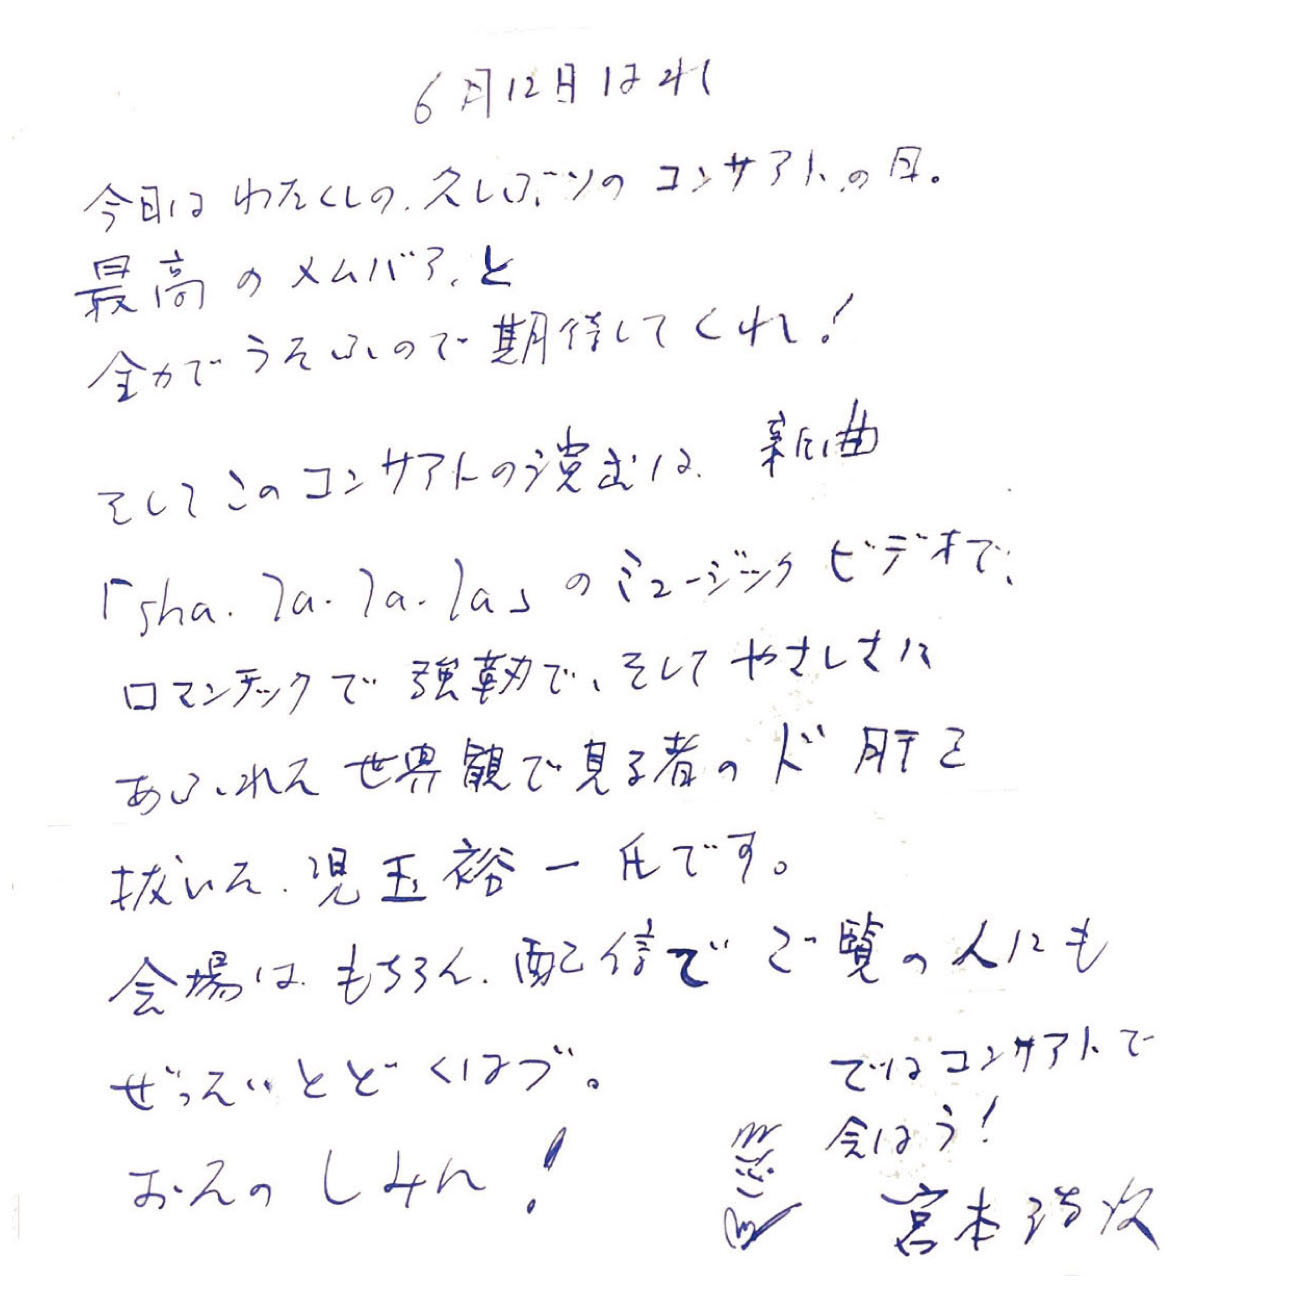 6月12日はれ
今日はわたくしの、久しぶりのコンサアトの日。
最高のメムバア、と
全力でうたふので期待してくれ!
そしてこのコンサアトの演出は、新曲
「sha・la・la・la」のミュージックビデオで、
ロマンチックで強靭で、そしてやさしさに
あふれた世界観で見る者のド肝を
抜いた、児玉裕一氏です。
会場はもちろん、配信でご覧の人にも
ぜったいとどくはづ。
おたのしみに!
ではコンサアトで
会はう!
宮本浩次